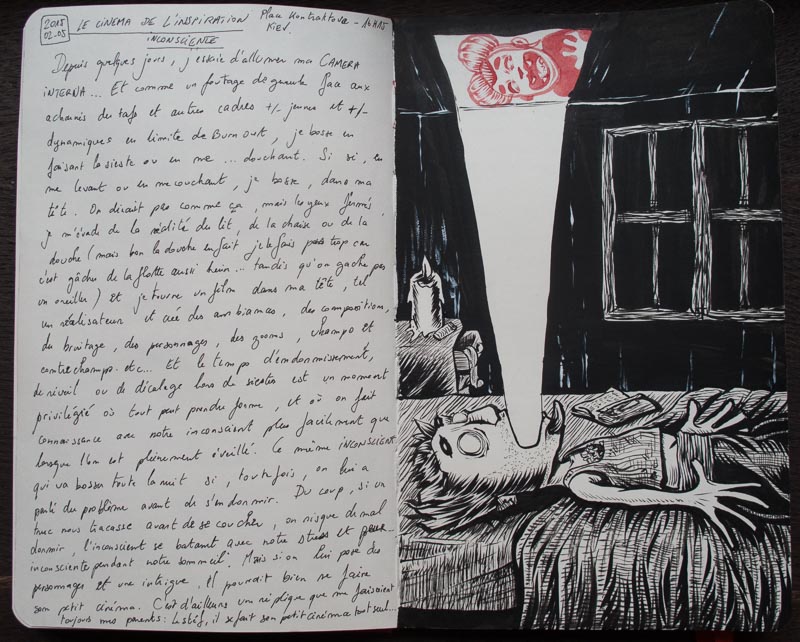 2015
02.05
LE CINEMA DE L'INSPIRATION Place Kontraktova - 14H15
INCONSCIENTE KIEV.
Depuis quelques jours, j'essaie d'allumer ma CAMERA
INTERNA... Et comme un foutage de gueule face aux
acharnés du taf et autres cadres +/- jeunes et +/-
dynamiques en limite de Burn out, je bosse en
faisant la sieste ou en me... douchant. Si si, en
me levant ou en me couchant, je bosse, dans ma
tête. On dirait pas comme ça, mais les yeux fermés,
je m'évade de la réalité du lit, de la chaise ou de la
douche (mais bon la douche en fait je le fais pas trop car
c'est gâcher de la flotte aussi hein... tandis qu'on gache pas
un oreiller) Et je tourne un film dans ma tête, tel
un réalisateur et crée des ambiances, des compositions,
du bruitage, des personnages, des zooms, champs et
contrechamps. etc... Et le temps d'endormissement,
de réveil ou de décalage lors de siestes est un moment
privilégié où tout peut prendre forme, et où on fait
connaissance avec notre inconscient plus facilement que
lorsque l'on est pleinement éveillé. Ce même INCONSCIENT
qui va bosser toute la nuit si, toutefois, on lui a
parlé du problème avant de s'endormir. Du coup, si un
truc nous tracasse avant de se coucher, on risque de mal
dormir, l'inconscient se battant avec notre stress et peur...
inconsciente pendant notre sommeil. Mais si on lui pose des
personnages et une intrigue, il pourrait bien se faire
son petit cinéma. C'est d'ailleurs une réplique que me faisaient
toujours mes parents: il se fait son petit cinéma tout seul...